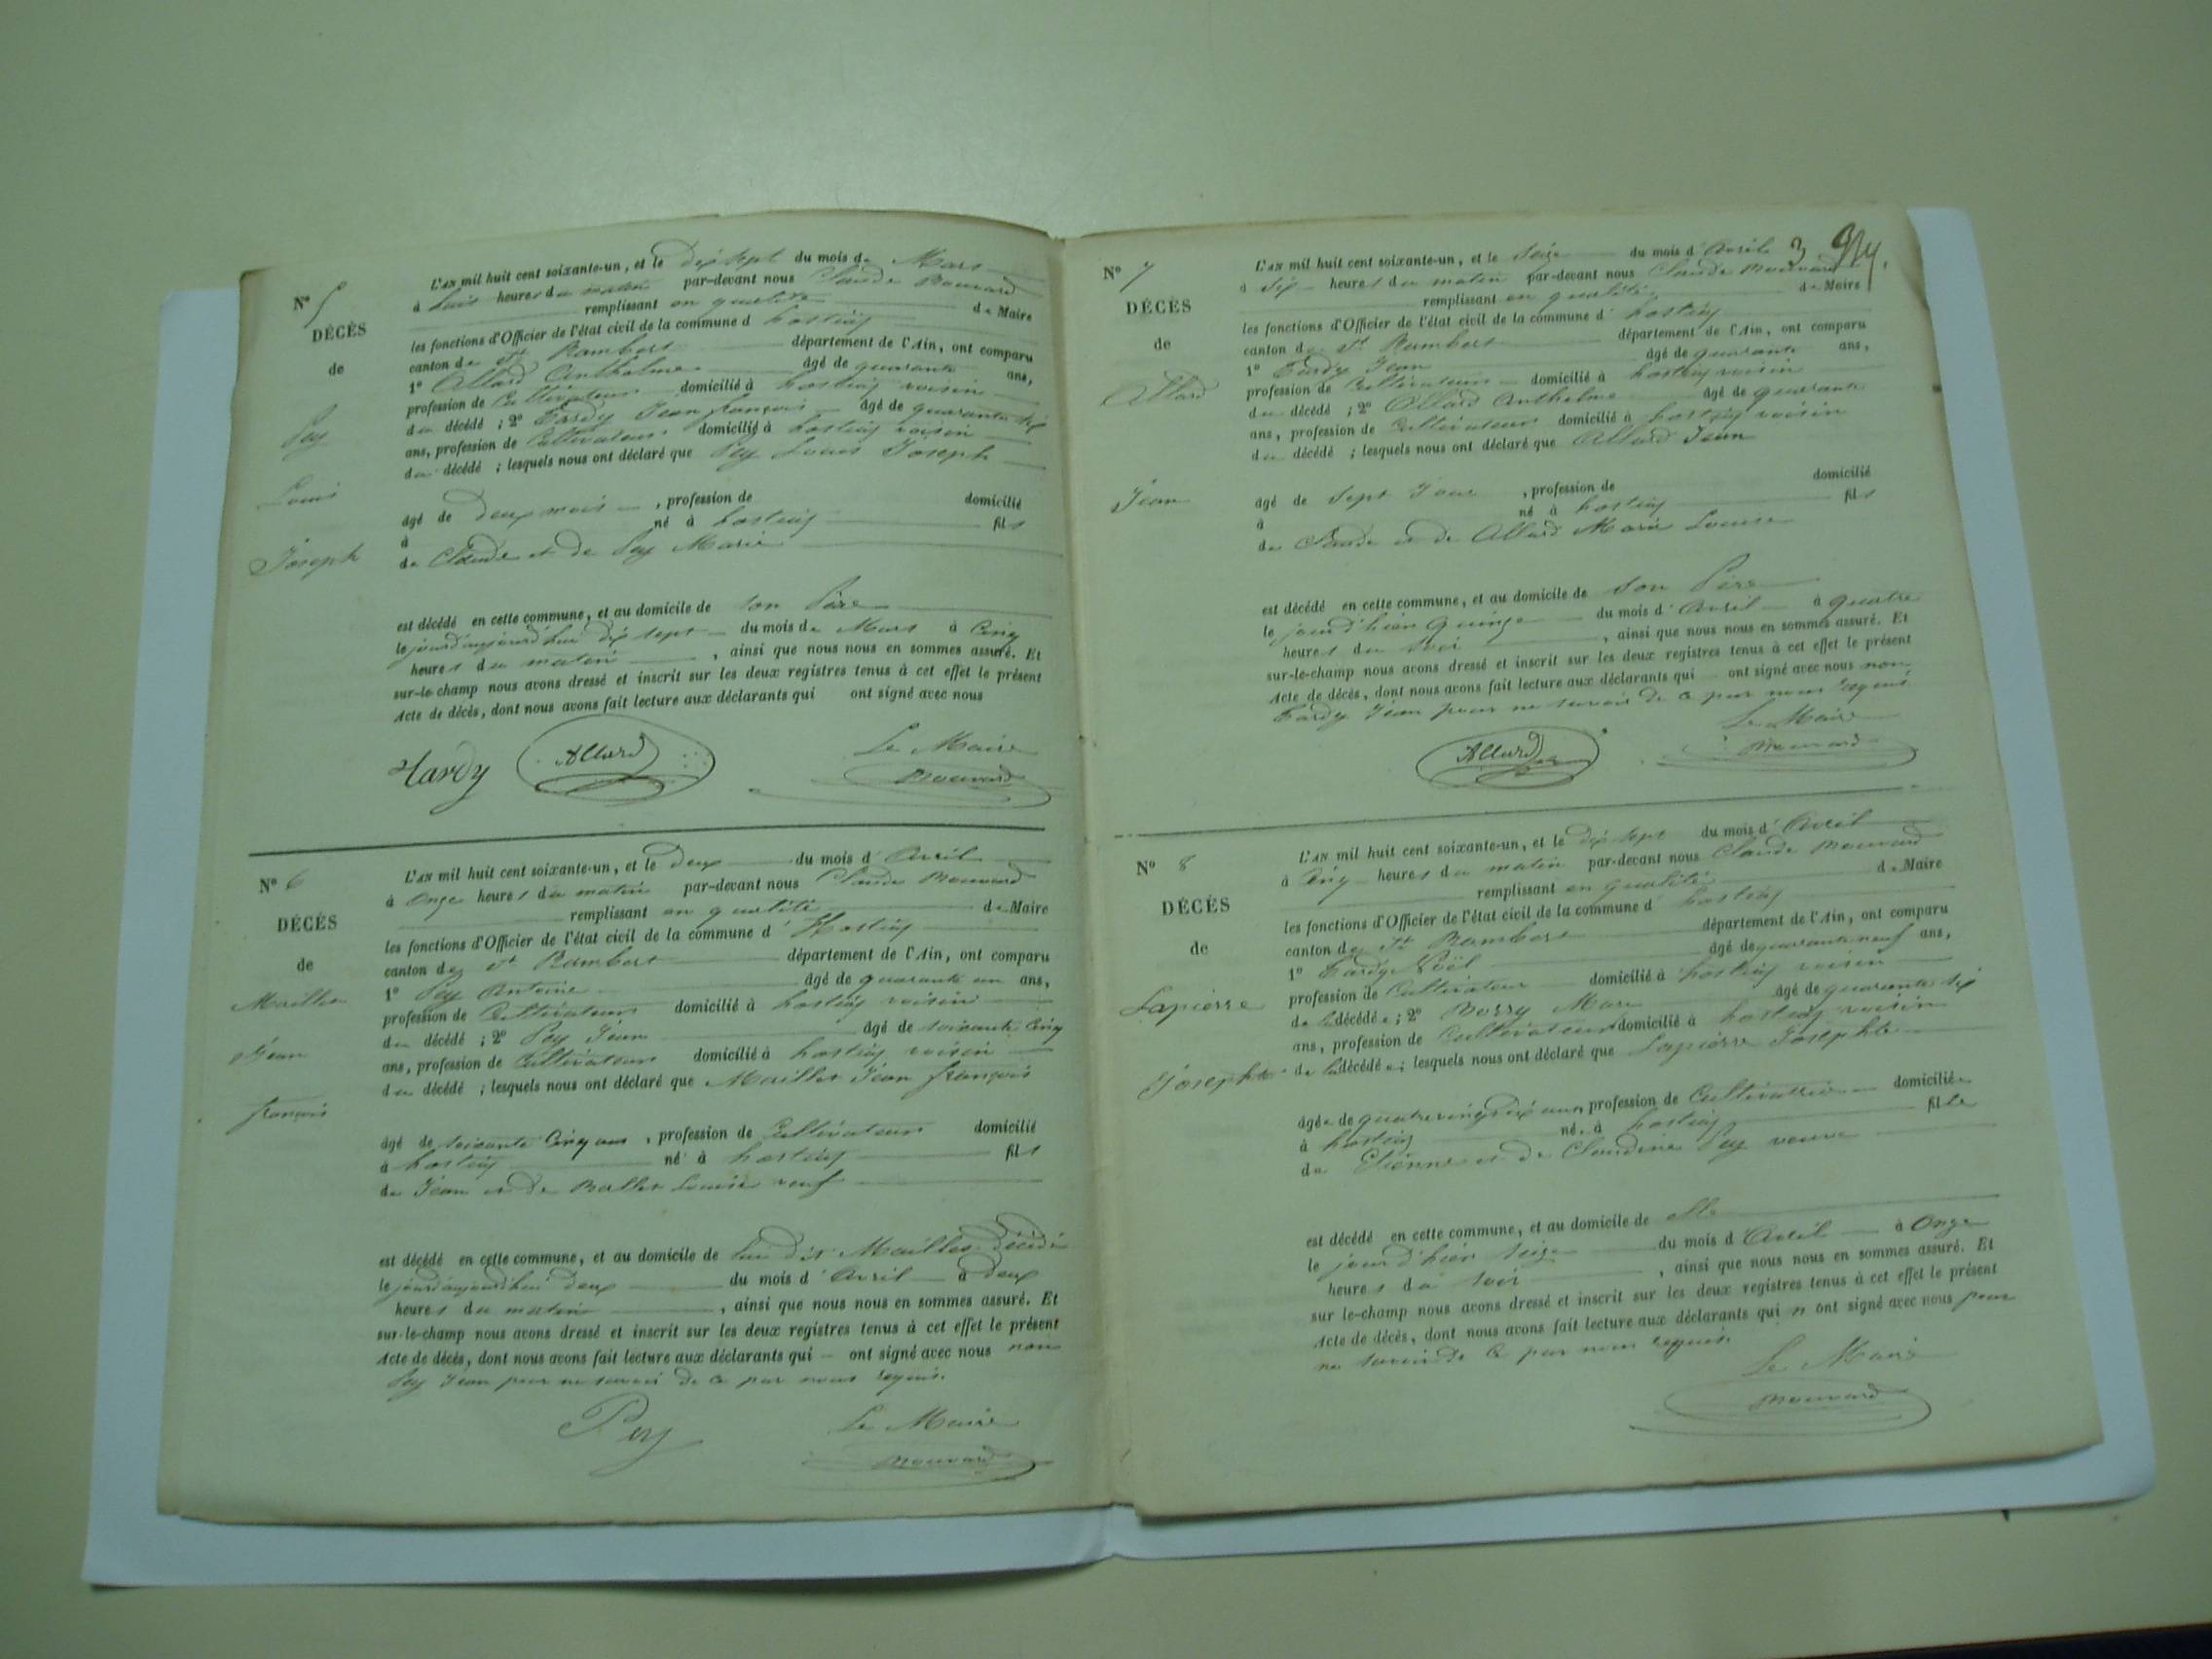 N° 5
DÉCÈS
de
Pey
Louis
Joseph
L'AN mil huit cent soixante-un, et le dix sept du mois de Mars
à huit heures du matin par-devant nous Claude Bouvard
remplissant en qualité de Maire
les fonctions d'Officier de l'état civil de la commune d'hostiaz
canton de St Rambert département de l'Ain, ont comparu
1° Allard Anthelme âgé de quarante ans,
profession de Cultivateur domicilié à hostiaz voisin
du décédé ; 2° Tardy Jean françois âgé de quarante six
ans, profession de Cultivateur domicilié à hostiaz voisin
du décédé ; lesquels nous ont déclaré que Pey Louis Joseph
âgé de deux mois , profession de domicilié
à né à hostiaz fils
de Claude et de Pey Marie
est décédé en cette commune, et au domicile de son Père
le jourd'aujourd'hui dix sept du mois de Mars à Cinq
heures du matin , ainsi que nous nous en sommes assuré. Et
sur-le-champ nous avons dressé et inscrit sur les deux registres tenus à cet effet le présent
Acte de décès, dont nous avons fait lecture aux déclarants qui ont signé avec nous
Tardy Allard Le Maire
Bouvard
N° 6
DÉCÈS
de
Maillet
Jean
françois
L'AN mil huit cent soixante-un, et le deux du mois d'Avril
à Onze heures du matin par-devant nous Claude Bouvard
remplissant en qualité de Maire
les fonctions d'Officier de l'état civil de la commune d'Hostiaz
canton de St Rambert département de l'Ain, ont comparu
1° Pey Antoine âgé de quarante un ans,
profession de Cultivateur domicilié à hostiaz voisin
du décédé ; 2° Pey Jean âgé de soixante Cinq
ans, profession de Cultivateur domicilié à hostiaz voisin
du décédé ; lesquels nous ont déclaré que Maillet Jean françois
âgé de soixante Cinq ans , profession de Cultivateur domicilié
à hostiaz né à hostiaz fils
de Jean et de Ballet Louise veuf
est décédé en cette commune, et au domicile de lui dit Maillet décédé
le jourd'aujourd'hui deux du mois d'Avril à deux
heures du matin , ainsi que nous nous en sommes assuré. Et
sur-le-champ nous avons dressé et inscrit sur les deux registres tenus à cet effet le présent
Acte de décès, dont nous avons fait lecture aux déclarants qui ont signé avec nous non
Pey Jean pour ne savoir de ce par nous requis.
Pey Le Maire
Bouvard
3
N° 7
DÉCÈS
de
Allard
Jean
L'AN mil huit cent soixante-un, et le seize du mois d'Avril
à dix heures du matin par-devant nous Claude Bouvard
remplissant en qualité de Maire
les fonctions d'Officier de l'état civil de la commune d'hostiaz
canton de St Rambert département de l'Ain, ont comparu
1° Tardy Jean âgé de quarante ans,
profession de Cultivateur domicilié à hostiaz voisin
du décédé ; 2° Allard Anthelme âgé de quarante
ans, profession de Cultivateur domicilié à hostiaz voisin
du décédé ; lesquels nous ont déclaré que Allard Jean
âgé de sept Jour , profession de domicilié
à né à hostiaz fils
de Claude et de Allard Marie Louise
est décédé en cette commune, et au domicile de son Père
le jour d'hier quinze du mois d'Avril à quatre
heures du soir , ainsi que nous nous en sommes assuré. Et
sur-le-champ nous avons dressé et inscrit sur les deux registres tenus à cet effet le présent
Acte de décès, dont nous avons fait lecture aux déclarants qui ont signé avec nous non
Tardy Jean pour ne savoir de ce par nous requis
Allard Le Maire
Bouvard
N° 8
DÉCÈS
de
Lapierre
Josephte
L'AN mil huit cent soixante-un, et le dix sept du mois d'Avril
à Cinq heures du matin par-devant nous Claude Bouvard
remplissant en qualité de Maire
les fonctions d'Officier de l'état civil de la commune d'hostiaz
canton de St Rambert département de l'Ain, ont comparu
1° Tardy Noël âgé de quarante neuf ans,
profession de Cultivateur domicilié à hostiaz voisin
de la décédée ; 2° Borry Marc âgé de quarante six
ans, profession de Cultivateur domicilié à hostiaz voisin
de la décédée ; lesquels nous ont déclaré que Lapierre Josephte
âgée de quatre vingt dix ans, profession de Cultivatrice domiciliée
à hostiaz née à hostiaz fille
de Etienne et de Claudine Pey veuve
est décédé en cette commune, et au domicile de elle
le jour d'hier seize du mois d'Avril à Onze
heures du soir , ainsi que nous nous en sommes assuré. Et
sur le-champ nous avons dressé et inscrit sur les deux registres tenus à cet effet le présent
Acte de décès, dont nous avons fait lecture aux déclarants qui n'ont signé avec nous pour
ne savoir de ce par nous requis.
Le Maire
Bouvard